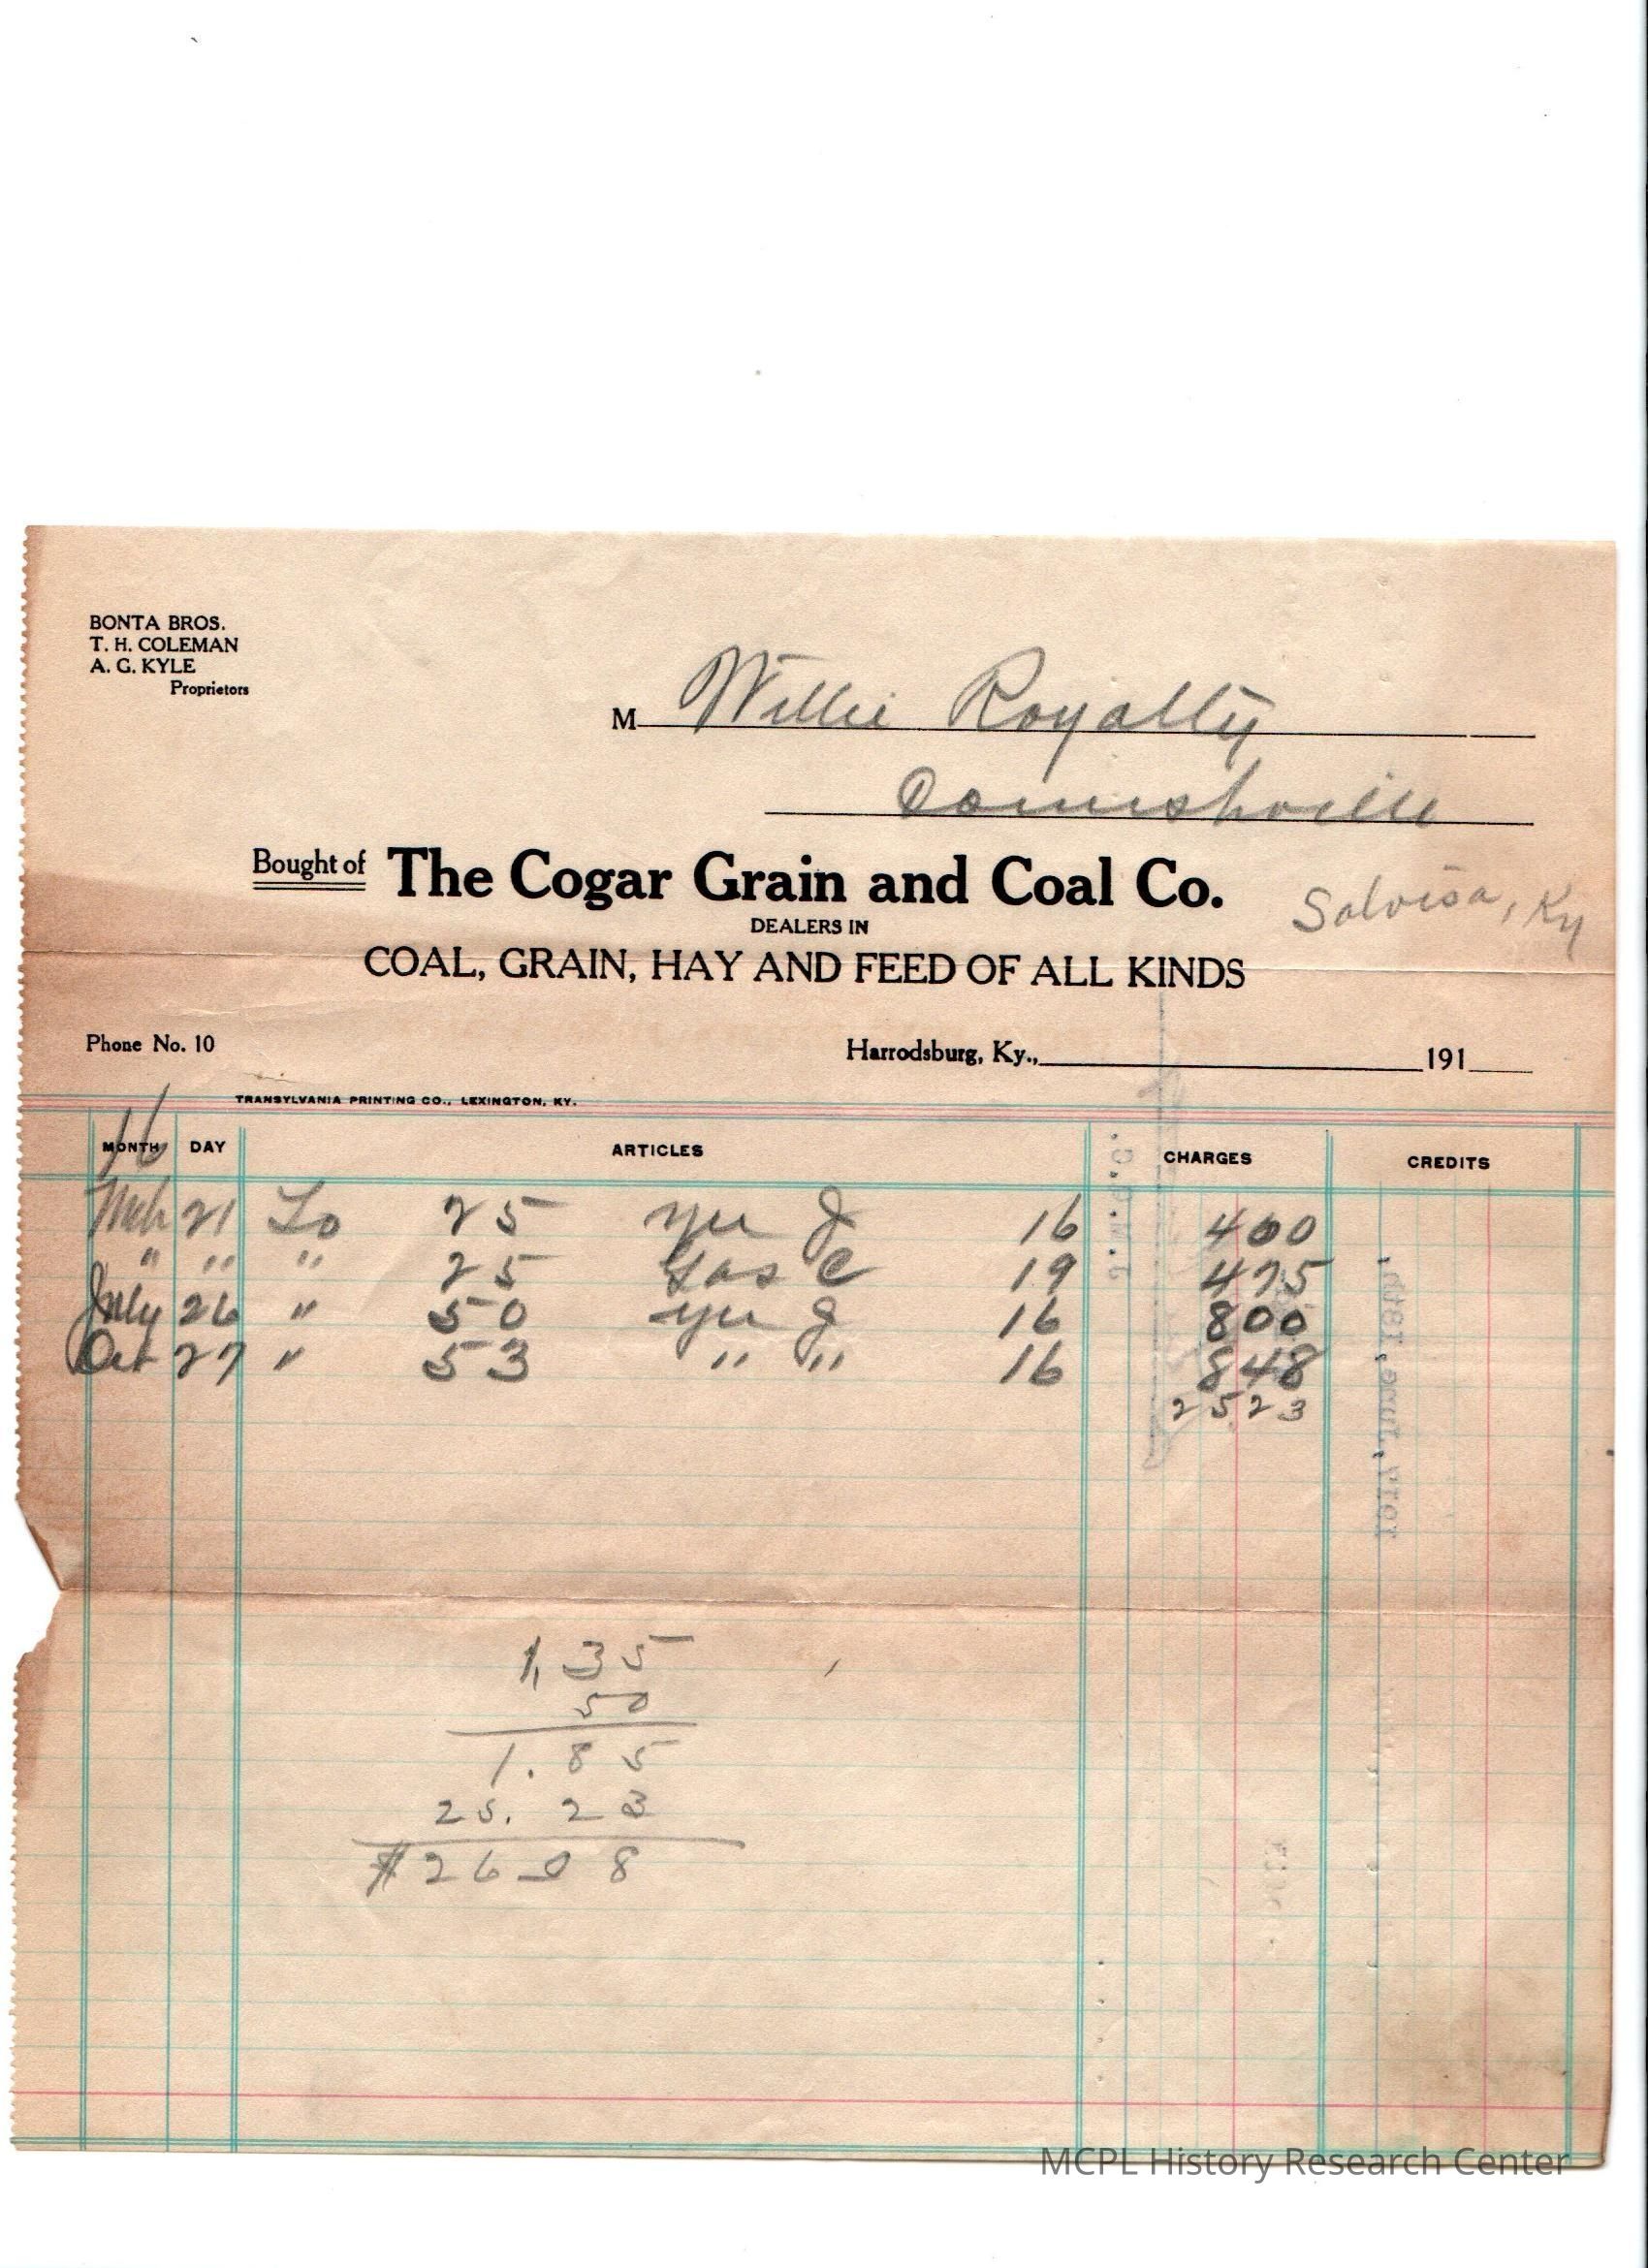 BONTA BROS.
T. H. COLEMAN
A. G. KYLE
Proprietors
M Willie Royalty
Cornishville
Bought of The Cogar Grain and Coal Co.
Salvisa, Ky
DEALERS IN
COAL, GRAIN, HAY AND FEED OF ALL KINDS
Phone No. 10 Harrodsburg, Ky., 191
TRANSYLVANIA PRINTING CO., LEXINGTON, KY.
16
MONTH DAY ARTICLES CHARGES CREDITS
Mch 21 To 25 16 400
" " " 25 19 475
July 26 " 50 16 800
Oct 27 " 53 " " 16 848
2523
1,35
50
1.85
25.23
$26 08
MCPL History Research Center